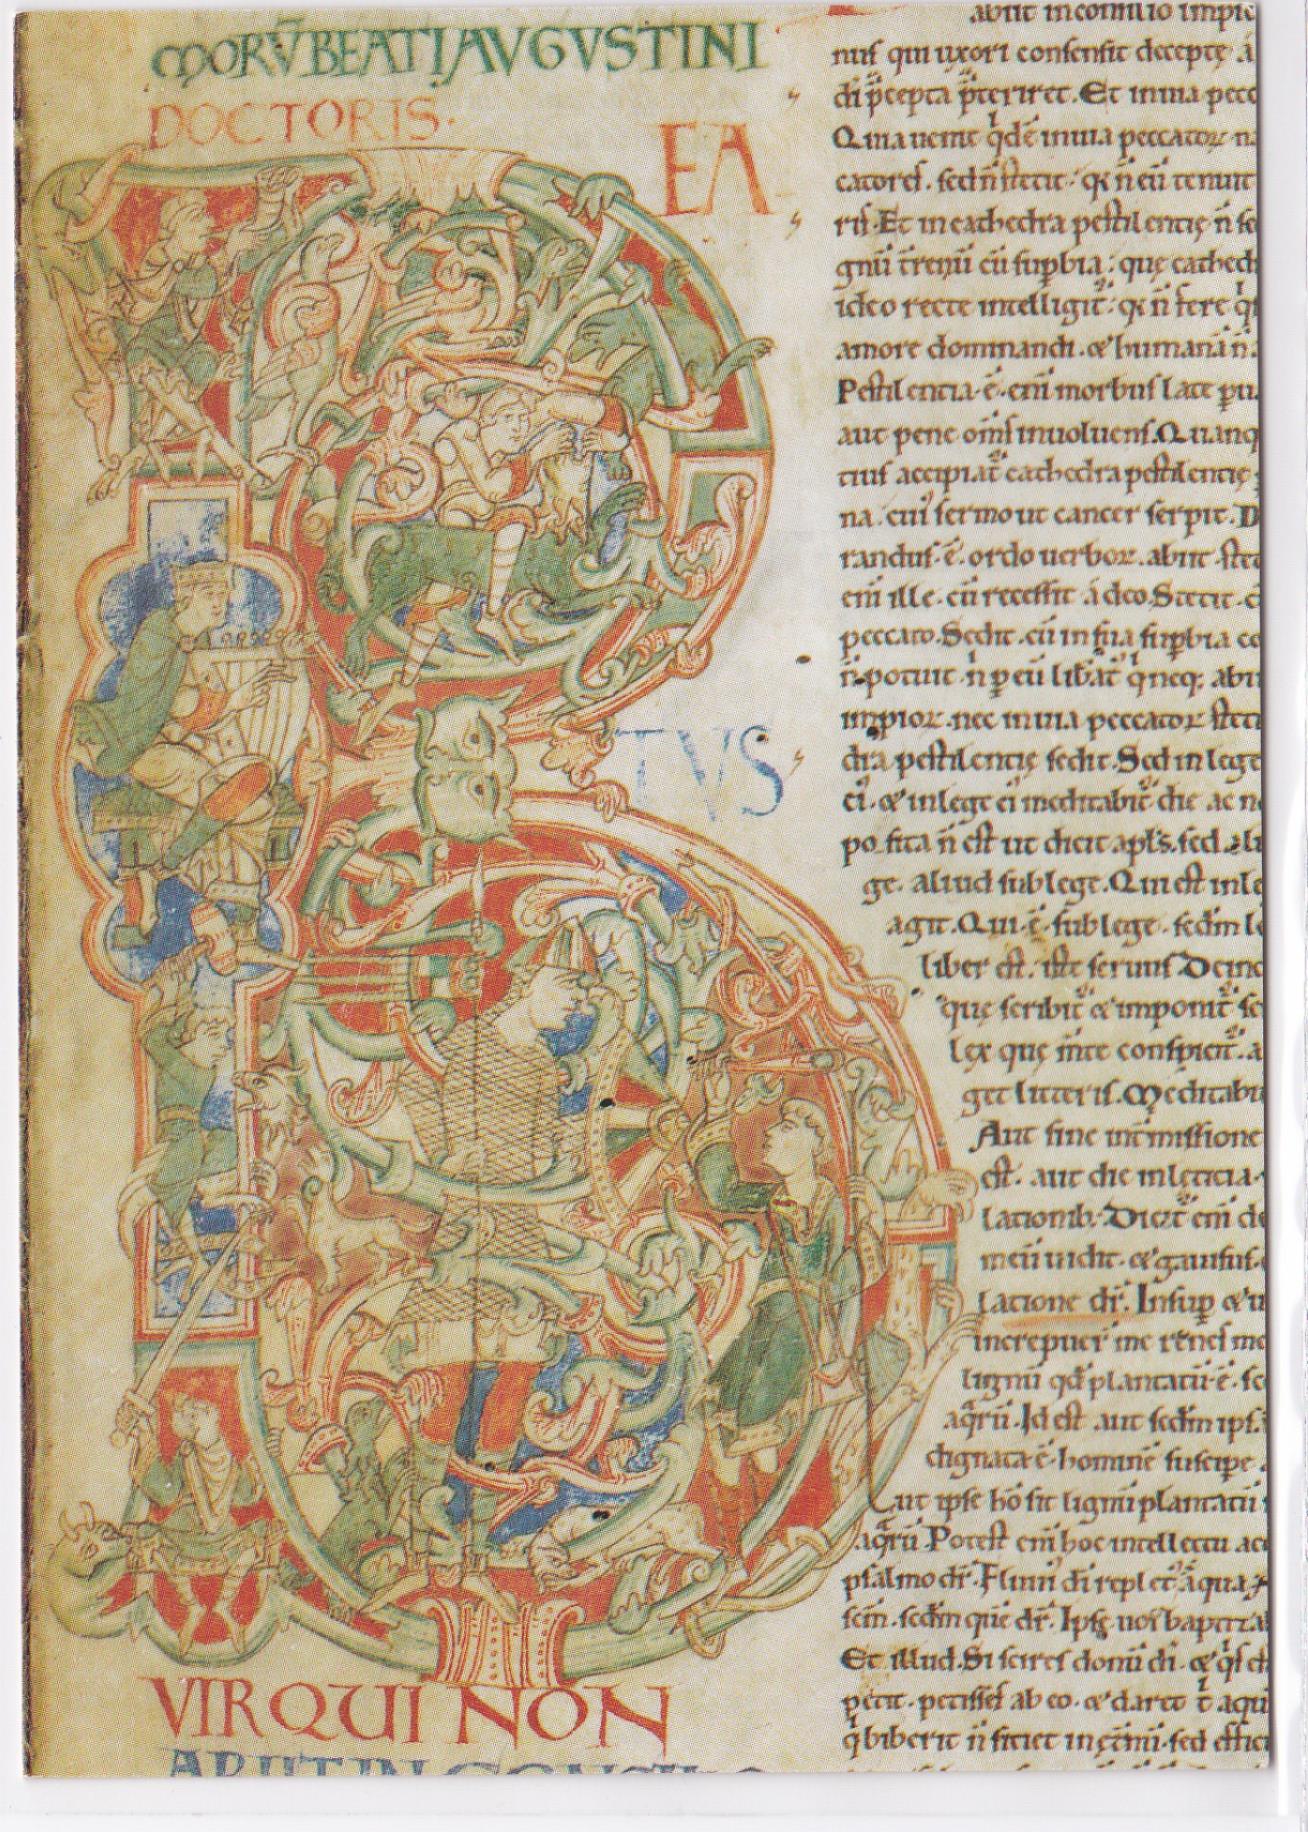 MORŪ BEATI AVGVSTINI
DOCTORIS.
BEA
TVS
VIR QUI NON
ABIIT IN CONSILIO
abiit in consilio impio
nus qui uxori consensit deceptę a
di p̄cepta p̄teriret. Et in uia pecc
Quia uenit qͥdē in uia peccatoꝝ na
catores. sed n̄ stetit; qꝫ n̄ eū tenuit
ris. Et in cathedra pestilentię n̄ se
gnū t̄renū cū suꝑbia; que cathed
ideo recte intelligit̄; qꝫ n̄ fere qͥ
amore dominandi. & humanā n̄.
Pestilentia ē. eni morbus late ꝑu
aut pene om̄s inuoluens. Quanq
tius accipiat̄ cathedra pestilentię
na. cui sermo ut cancer serpit. D
randus. ē. ordo uerboꝝ. abiit. stet
eni ille. cū recessit a deo. Stetit. c
peccato. Sedit. cū in sua suꝑbia co
n̄ potuit. n ͥ ꝑ eū libat̄ qͥ neqꝫ abii
impioꝝ. nec in uia peccatoꝝ steti
dra pestilentię sedit. Sed in lege
ei. & in lege ei meditabit̄ die ac n
posita n̄ est ut dicit apl̄s. sed ali
ge. aliud sub lege. Qui est in le
agit. Qui. ē. sub lege. scd̄m le
liber est. iste seruus Deinc
quę scribit̄ & imponit̄ se
lex quę m̄te conspicit̄. a
get litteris. Meditabi
Aut sine int̄missione
est. aut die in lęticia.
lationib. Dicit̄ eni de
meū uidit. & gauisus.
latione dr̄. Insuꝑ & u
increpuer̄ me renes me
lignū qd̄ plantatū. ē. se
aqͣrū. Id est aut scd̄m ips
dignata. ē. hominē suscipe.
Aut ipse ho sit lignū plantatū
aqͣrū. Potest eni hoc intellectu ac
psalmo dr̄. Flum̄ di replet̄ aqua
scm̄. scd̄m que dr̄. Ipse uos baptiza
Et illud. Si scires donū di. & qͥs
petit. petisses ab eo. & daret t ͥ aquā
qͥ biberit n̄ sitiet in ęt̄nū. sed effic